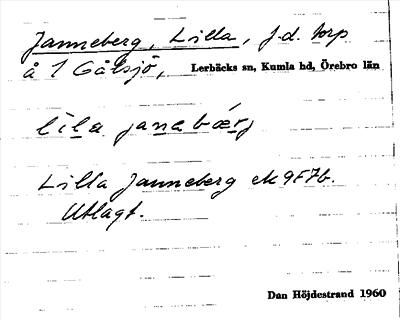 Janneberg, Lilla, f.d. torp
å 1 Gålsjö, Lerbäcks sn, Kumla hd, Örebro län
lila janebærj
Lilla Janneberg ek 9F7b.
Utlagt.
Dan Höjdestrand 1960